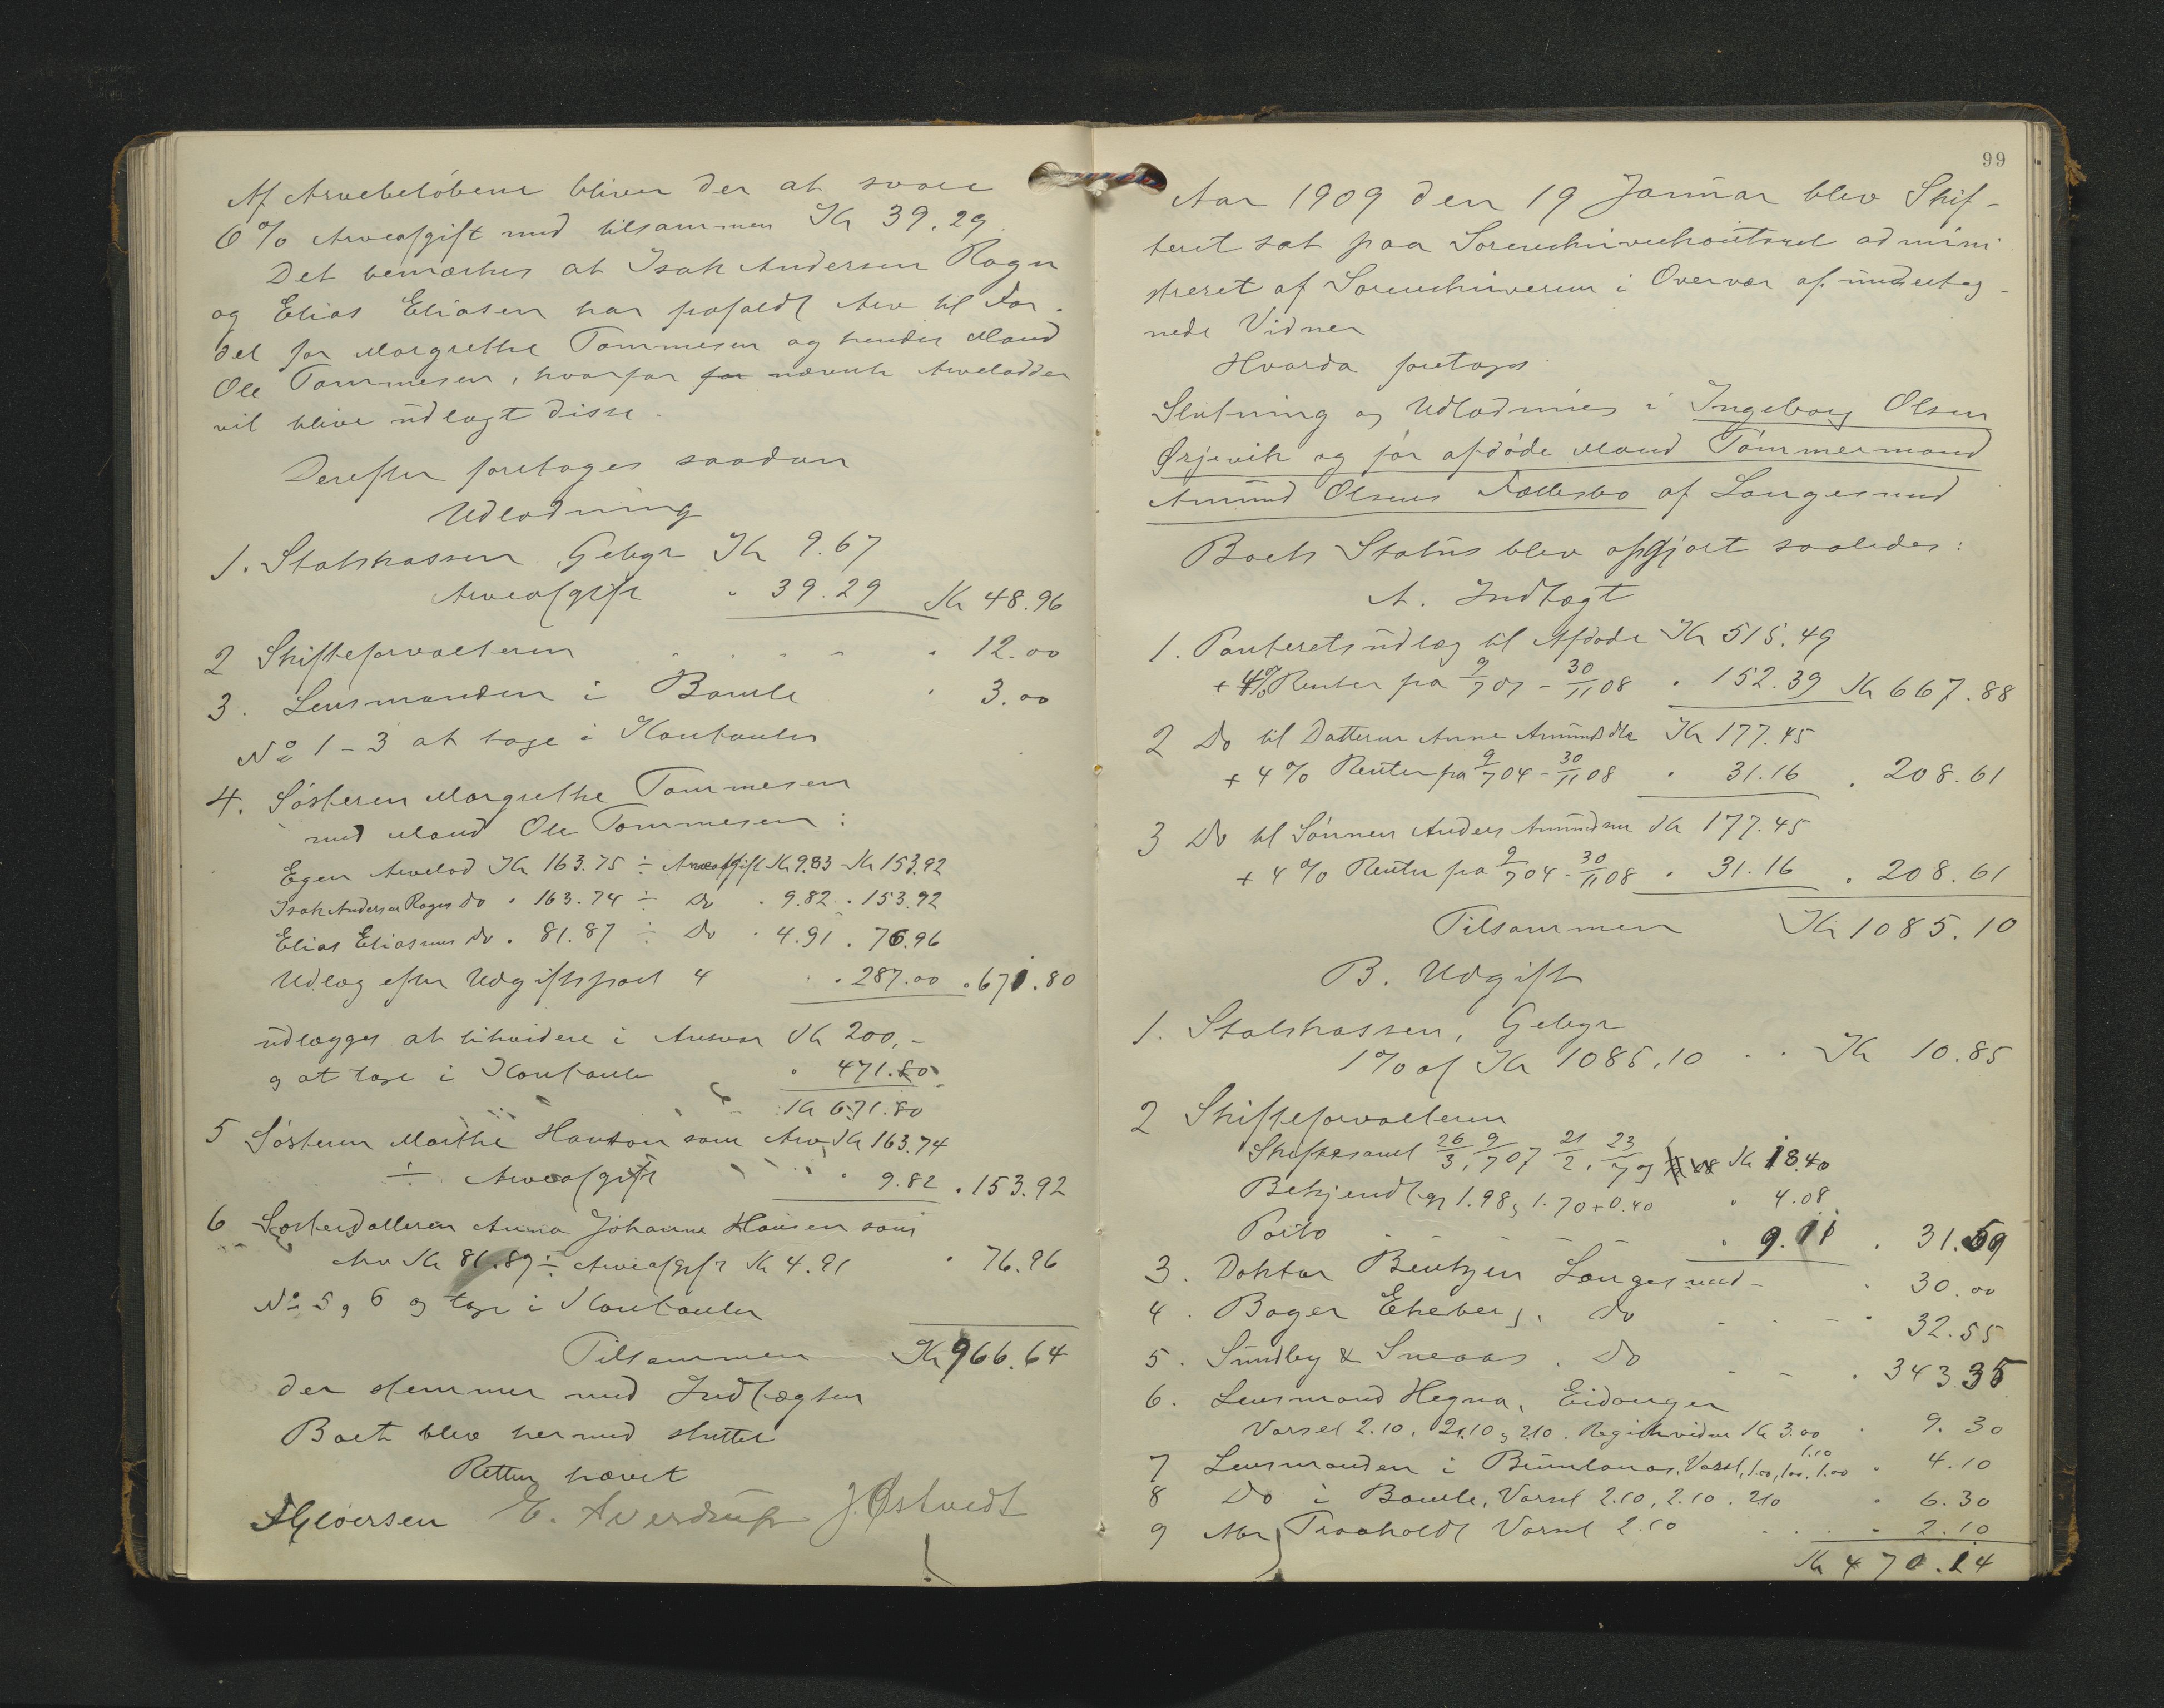 Af Arvebeløbene bliver der at svare
6 % Arveafgift med tilsammen Kr 39.29
Det bemærkes at Isak Andersen Rogn
og Elias Eliasen har frafaldt Arv til For-
del for Margrethe Tommesen og hendes Mand
Ole Tommesen, hvorfor for nævnte Arvelodder
vil blive udlagt disse.
Derefter foretages saadan
Udlodning
1. Statskassen, Gebyr Kr 9.67
Arveafgift " 39.29 Kr 48.96
2 Skifteforvalteren " 12.00
3. Lensmanden i Bamle " 3.00
No 1-3 at tage i Kontanter
4. Søsteren Margrethe Tommesen
med Mand Ole Tommesen:
Egen Arvelod Kr 163.75 ÷ Arveafgift Kr 9.83 - Kr 153.92
Isak Andersen Rogns Do " 163.74 ÷ Do " 9.82 " 153.92
Elias Eliasens Do " 81.87 ÷ Do " 4.91 " 76.96
Udlæg efter Udgiftspost 4 " 287.00 " 671.80
udlægges at likvidere i Ansvar Kr 200,-
og at tage i Kontanter " 471.80
Kr 671.80
5 Søsteren Marthe Hanson som Arv Kr 163.74
÷ Arveafgift " 9.82 " 153.92
6 Søsterdatteren Anna Johanne Hansen som
Arv Kr 81.87 ÷ Arveafgift Kr 4.91 " 76.96
No 5 og 6 og tage i Kontanter
Tilsammen Kr 966.64
der stemmer med Indtægten
Boet blev hermed sluttet
Retten hævet
E. Averdrup J. Østvedt
99
Aar 1909 den 19 Januar blev Skif-
teret sat paa Sorenskriverkontoret admini-
streret af Sorenskriveren i Overvær af underteg-
nede Vidner
Hvorda foretoges
Slutning og Udlodning i Ingeborg Olsen
Ørjevik og før afdøde Mand Tømmermand
Amund Olsens Fællesbo af Langesund
Boets Status blev opgjort saaledes:
A. Indtægt
1. Panteretsudlæg til Afdøde Kr 515.49
+ 4% Renter fra 9/7 07 - 30/11 08 " 152.39 Kr 667.88
2 Do til Datteren Anne Amundsdtr Kr 177.45
+ 4 % Renter fra 9/7 04 - 30/11 08 " 31.16 " 208.61
3 Do til Sønnen Anders Amundsen Kr 177.45
+ 4 % Renter fra 9/7 04 - 30/11 08 " 31.16 " 208.61
Tilsammen Kr 1085.10
B. Udgift
1. Statskassen, Gebyr
1% af Kr 1085.10 Kr 10.85
2 Skifteforvalteren
Skiftesaml 26/3, 9/7 07 21/2, 23/7 Kr 18.40
Bekjendtg 1.98, 1.70 + 0.40 " 4.08
Porto " 9.11 " 31.59
3. Doktor Bentzen Langesund " 30.00
4. Bager Ekeberg, Do " 32.55
5. Sundby & Sneaas, Do " 343.35
6. Lensmand Hegna, Eidanger
Varsel 2.10, 2.10, 2.10. Registrvidne Kr 3.00 " 9.30
7 Lensmanden i Brunlanæs, Varsel 1.10, 1.00, 1.00, 1.00 " 4.10
8 Do i Bamle, Varsel 2.10, 2.10, 2.10 " 6.30
9 Traaholdt Varsel 2.10 " 2.10
Kr 470.14